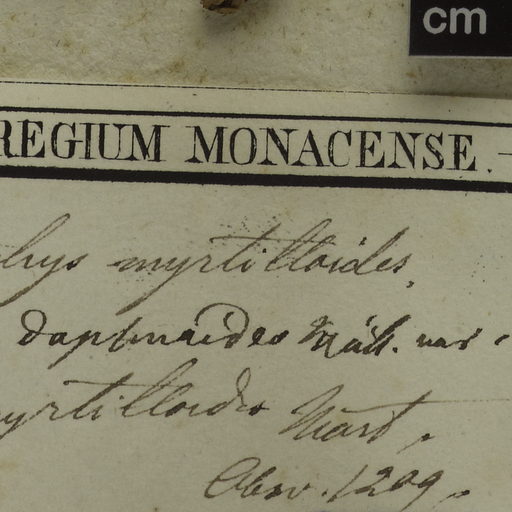 cm
REGIUM MONACENSE.
myrtilloides.
daphnoides Müll. var.
myrtilloides Mart.
Obsv. 1209.